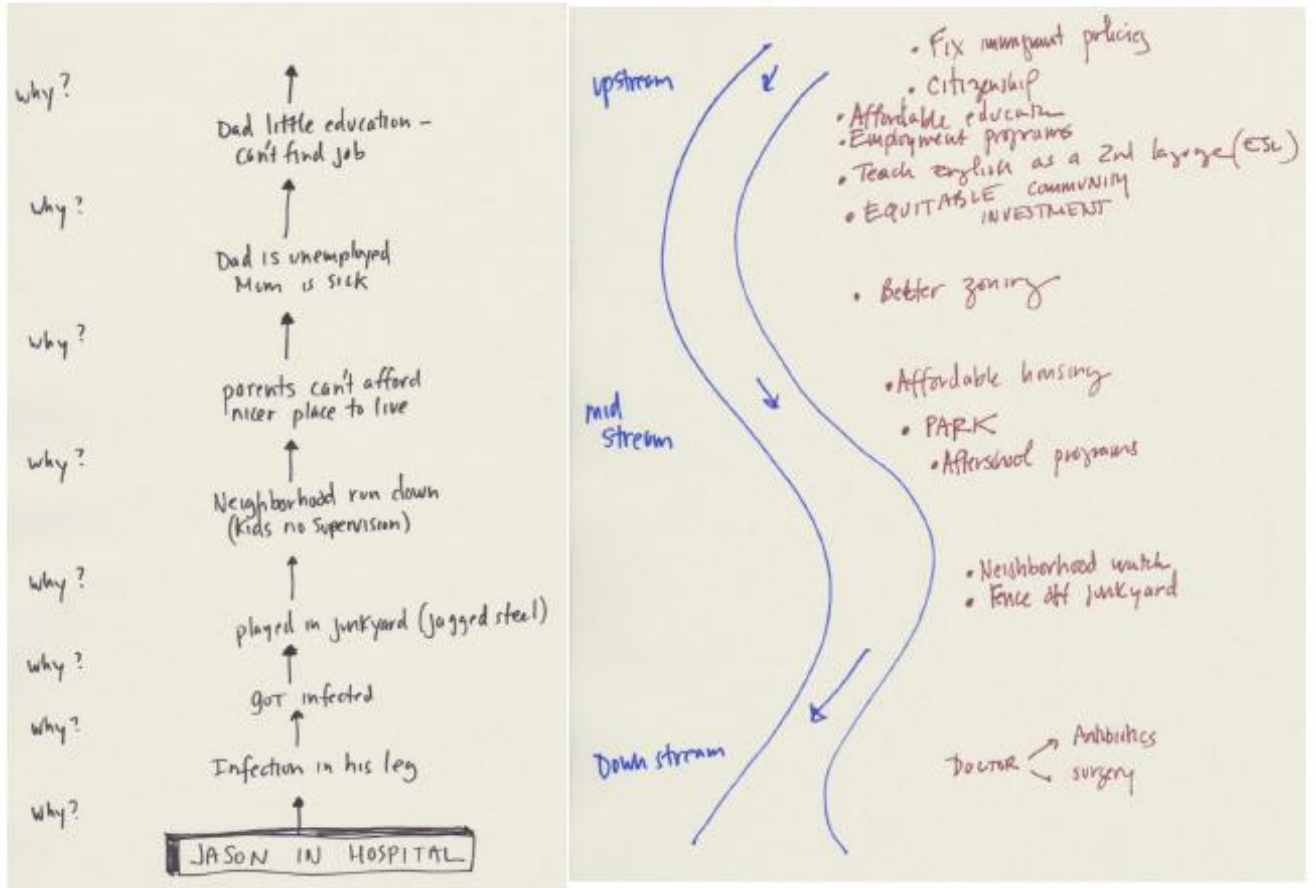 why?
Dad little education –
can't find job
why?
Dad is unemployed
Mom is sick
why?
parents can't afford
nicer place to live
why?
Neighborhood run down
(kids no supervision)
why?
played in junkyard (jagged steel)
why?
got infected
why?
Infection in his leg
why?
JASON IN HOSPITAL
upstream
mid
stream
Down stream
• Fix immigrant policies
• Citizenship
• Affordable education
• Employment programs
• Teach English as a 2nd language (ESL)
• EQUITABLE COMMUNITY
INVESTMENT
• Better zoning
• Affordable housing
• PARK
• Afterschool programs
• Neighborhood watch
• Fence off junkyard
DOCTOR
Antibiotics
surgery